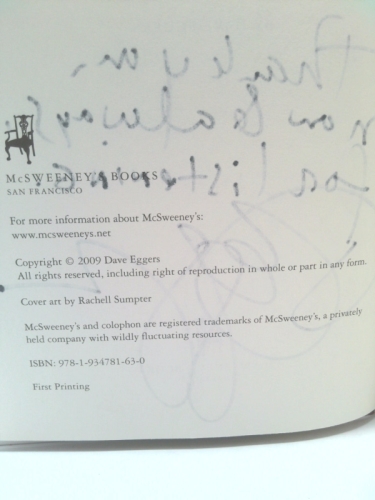 Thank you,
now & always
for listening.
McSWEENEY'S BOOKS
SAN FRANCISCO
For more information about McSweeney's:
www.mcsweeneys.net
Copyright © 2009 Dave Eggers
All rights reserved, including right of reproduction in whole or part in any form.
Cover art by Rachell Sumpter
McSweeney's and colophon are registered trademarks of McSweeney's, a privately
held company with wildly fluctuating resources.
ISBN: 978-1-934781-63-0
First Printing